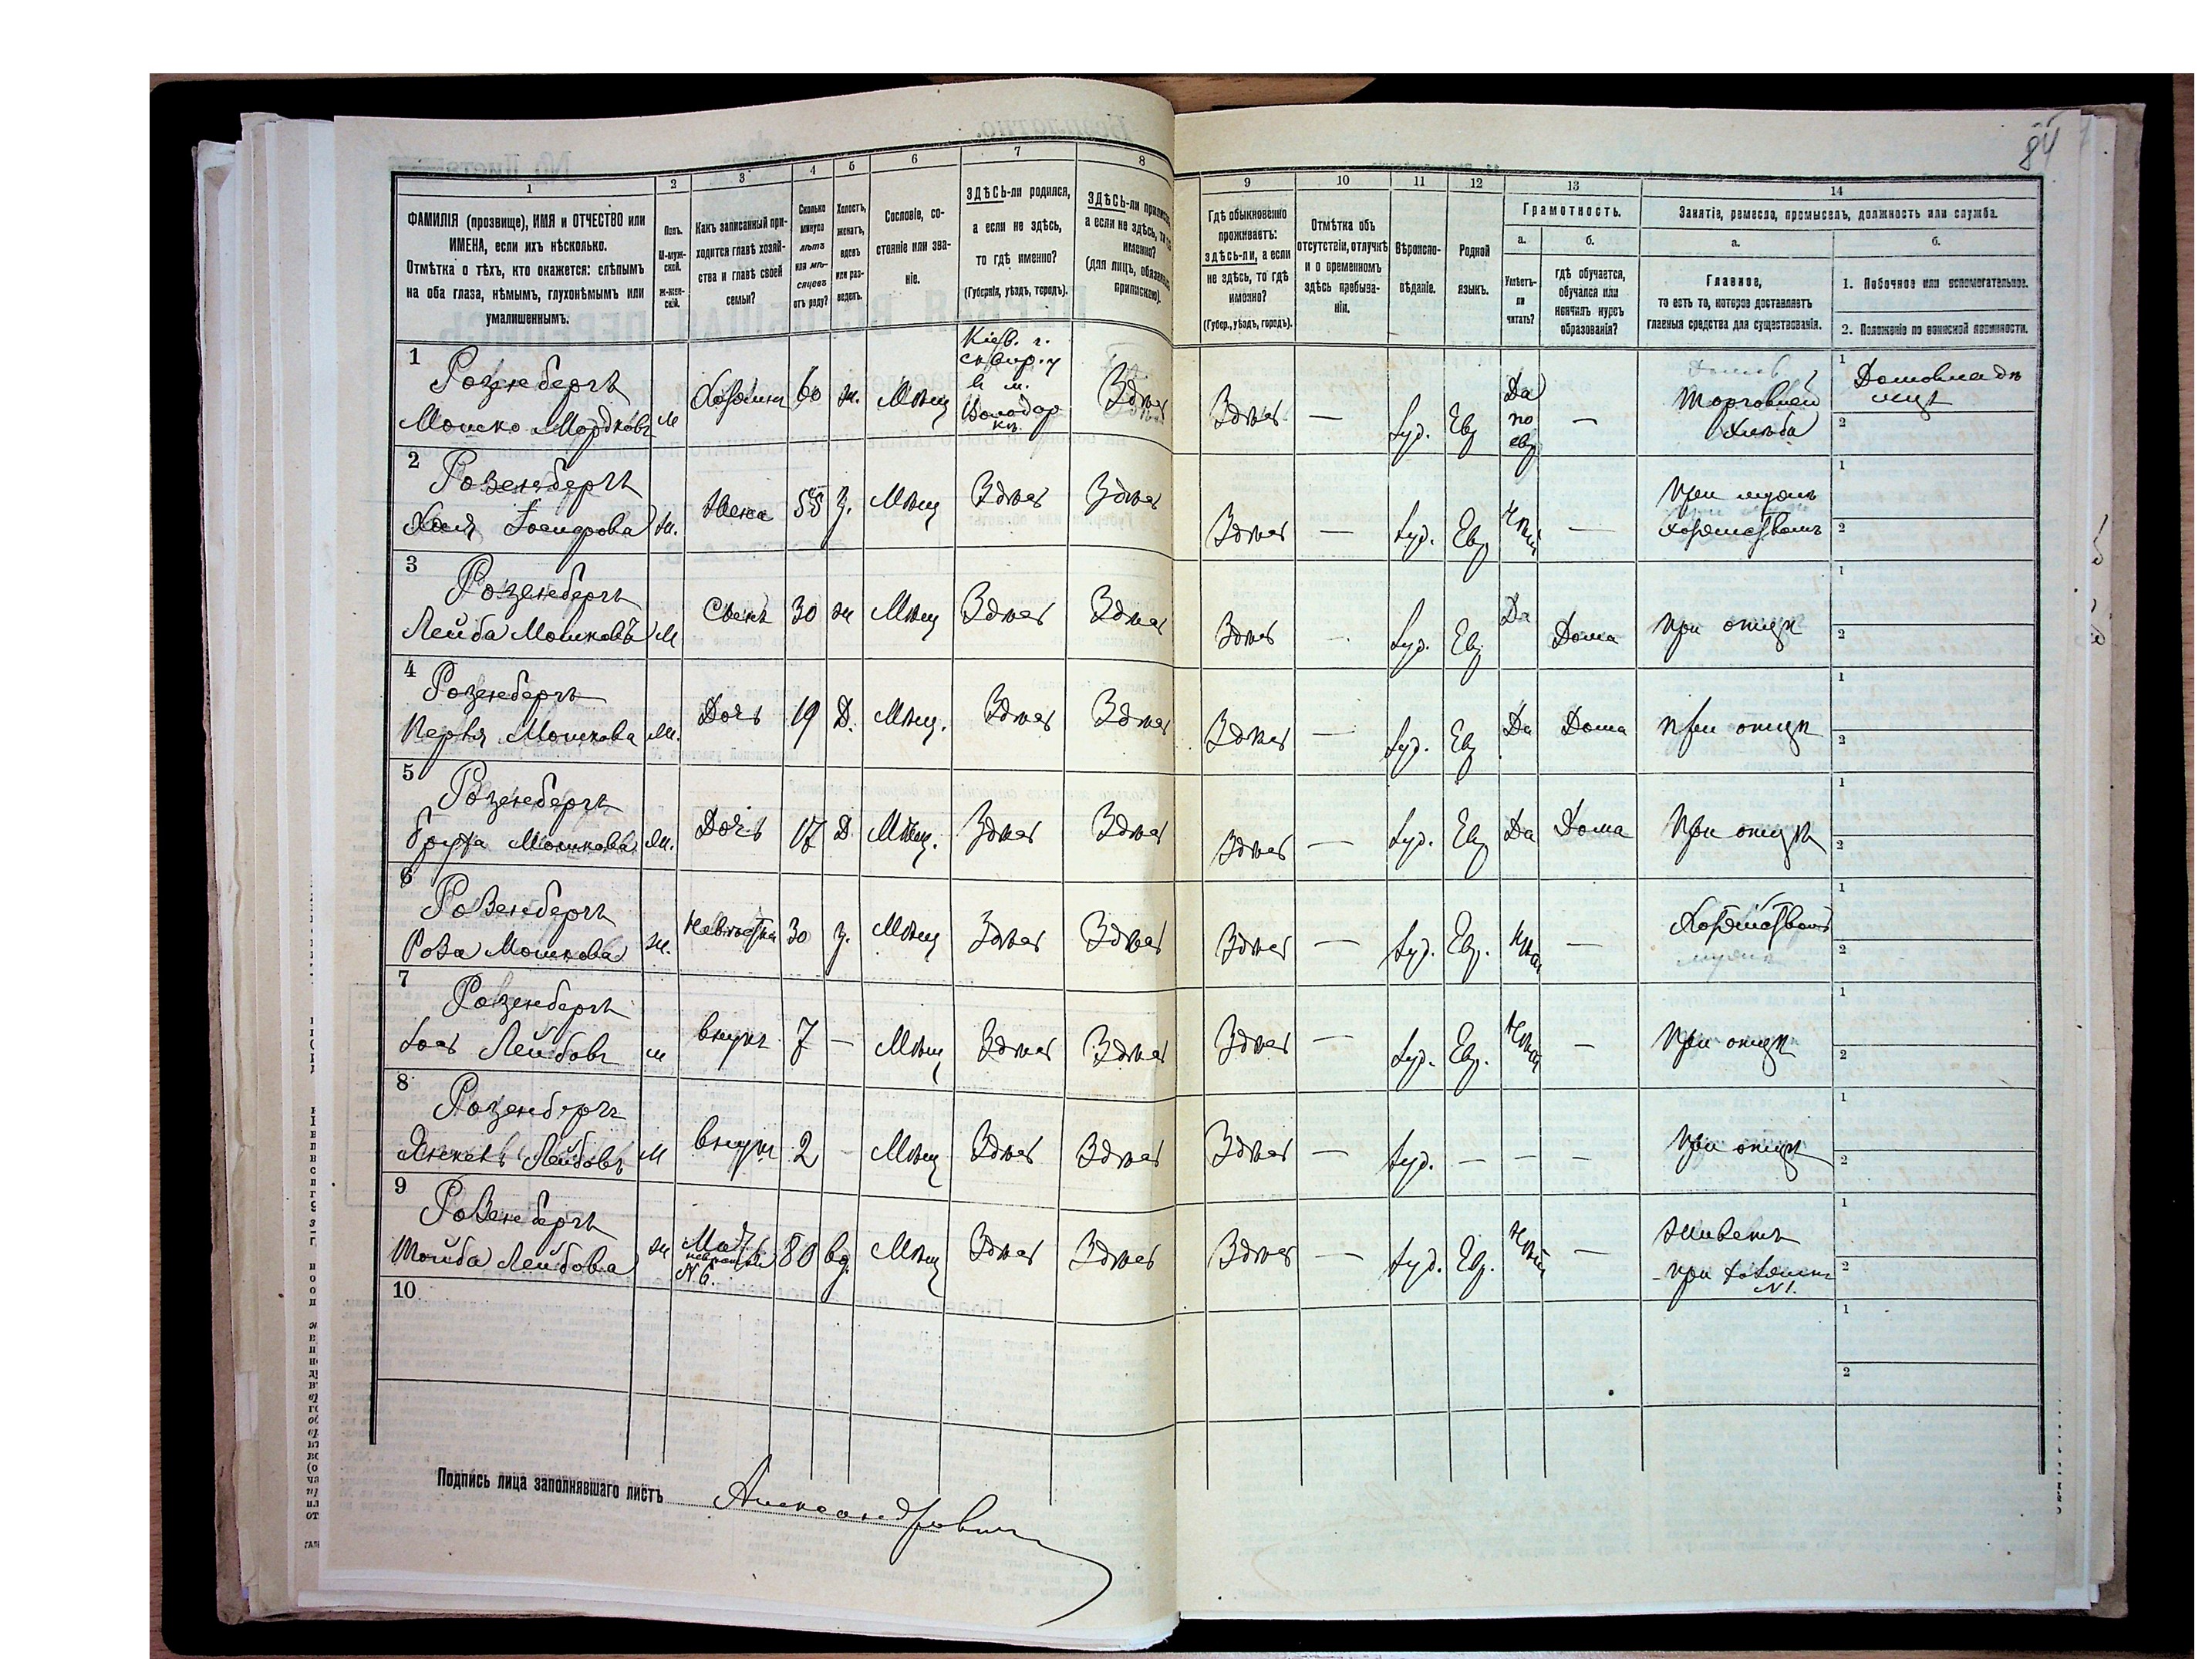 84
1 2 3 4 5 6 7 8 9 10 11 12 13 14
ФАМИЛІЯ (прозвище), ИМЯ и ОТЧЕСТВО или
ИМЕНА, если ихъ нѣсколько.
Отмѣтка о тѣхъ, кто окажется: слѣпымъ
на оба глаза, нѣмымъ, глухонѣмымъ или
умалишеннымъ.
Полъ.
М-муж-
ской.
Ж-жен-
скій.
Какъ записанный при-
ходится главѣ хозяй-
ства и главѣ своей
семьи?
Сколько
минуло
лѣтъ
или мѣ-
сяцевъ
отъ роду?
Холостъ,
женатъ,
вдовъ
или раз-
веденъ.
Сословіе, со-
стояніе или зва-
ніе.
ЗДѢСЬ-ли родился,
а если не здѣсь,
то гдѣ именно?
(Губернія, уѣздъ, городъ).
ЗДѢСЬ-ли
а если не здѣсь,
именно?
(для лицъ,
припискою).
Гдѣ обыкновенно
проживаетъ:
здѣсь-ли, а если
не здѣсь, то гдѣ
именно?
(Губер., уѣздъ, городъ).
Отмѣтка объ
отсутствіи, отлучкѣ
и о временномъ
здѣсь пребыва-
ніи.
Вѣроиспо-
вѣданіе.
Родной
языкъ.
Грамотность.
а.
Умѣетъ-
ли
читать?
б.
гдѣ обучается,
обучался или
кончилъ курсъ
образованія?
Занятіе, ремесло, промыселъ, должность или служба.
а.
Главное,
то есть то, которое доставляетъ
главныя средства для существованія.
б.
1. Побочное или вспомогательное.
2. Положеніе по воинской повинности.
1 Розенбергъ
Мошко Мордковъ м Хозяинъ 60 ж. Мѣщ
Кіев. г.
сквир. у
в м.
Володар
ка
Здѣсь Здѣсь — Іуд. Евр
Да
по
евр
—
Торговлей
хлеба
1 Домовладѣ
лецъ
2
2 Розенбергъ
Хая Іосифова ж. Жена 55 з. Мѣщ Здѣсь Здѣсь Здѣсь — Іуд. Евр Нѣтъ —
При мужѣ
хозяйствомъ
1
2
3 Розенбергъ
Лейба Мошковъ М. Сынъ 30 ж Мѣщ Здѣсь Здѣсь Здѣсь Іуд. Евр Да Дома при отцѣ
1
2
4 Розенбергъ
Перля Мошкова ж. Дочь 19 Д. Мѣщ. Здѣсь Здѣсь Здѣсь — Іуд. Евр Да Дома при отцѣ
1
2
5 Розенбергъ
Мошкова ж. Дочь 17 Д Мѣщ. Здѣсь Здѣсь Здѣсь — Іуд. Евр Да Дома При отцѣ
1
2
6 Розенбергъ
Роза Мошкова ж. Невѣстка 30 з. Мѣщ Здѣсь Здѣсь Здѣсь — Іуд. Евр. Нѣтъ — Хозяйством
1
2
7 Розенбергъ
Лейбовъ м внукъ 7 — Мѣщ Здѣсь Здѣсь Здѣсь — Іуд. Евр. Нѣтъ — При отцѣ
1
2
8 Розенбергъ
Лейбовъ м внукъ 2 — Мѣщ Здѣсь Здѣсь Здѣсь — Іуд. — — — При отцѣ
1
2
9 Розенбергъ
Тойба Лейбова ж Мать
невѣстки
N 6. 80 вд. Мѣщ Здѣсь Здѣсь Здѣсь — Іуд. Евр. Нѣтъ —
Живетъ
при хозяинѣ
N 1.
1
2
10
1
2
Подпись лица заполнявшаго листъ Александровичъ